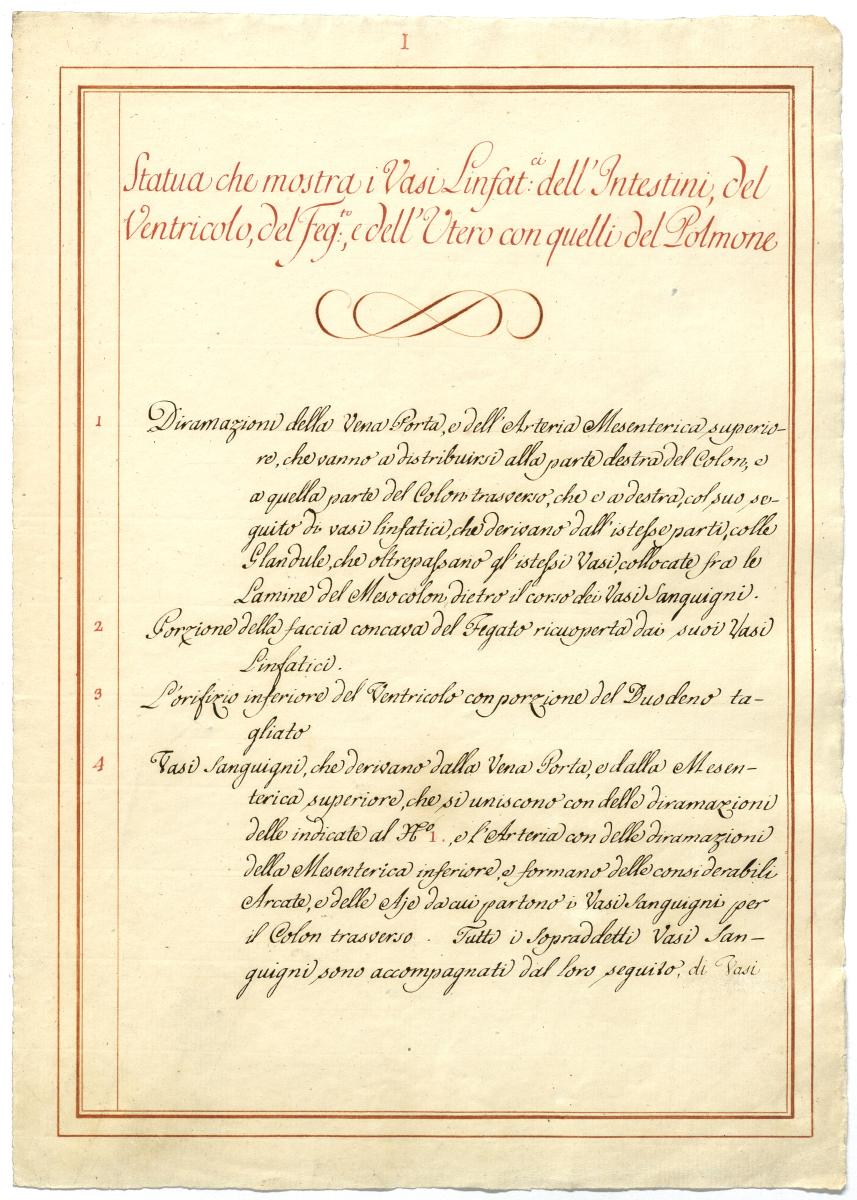 I
Statua che mostra i Vasi Linfat:ci dell'Intestini, del
Ventricolo, del Feg:to, e dell'Utero con quelli del Polmone
1 Diramazioni della Vena Porta, e dell'Arteria Mesenterica superio-
re, che vanno a distribuirsi alla parte destra del Colon, e
a quella parte del Colon trasverso, che e a destra, col suo se-
guito di vasi linfatici, che derivano dall'istesse parti, colle
Glandule, che oltrepassano gl'istessi Vasi, collocate fra le
Lamine del Mesocolon, dietro il corso dei Vasi Sanguigni.
2 Porzione della faccia concava del Fegato ricuoperta dai suoi Vasi
Linfatici.
3 L'orifizio inferiore del Ventricolo con porzione del Duodeno ta-
gliato
4 Vasi Sanguigni, che derivano dalla Vena Porta, e dalla Mesen-
terica superiore, che si uniscono con delle diramazioni
delle indicate al No 1., e l'Arteria con delle diramazioni
della Mesenterica inferiore, e formano delle considerabili
Arcate, e delle Aje da cui partono i Vasi Sanguigni per
il Colon trasverso. Tutti i Sopraddetti Vasi San-
guigni sono accompagnati dal loro seguito, di Vasi